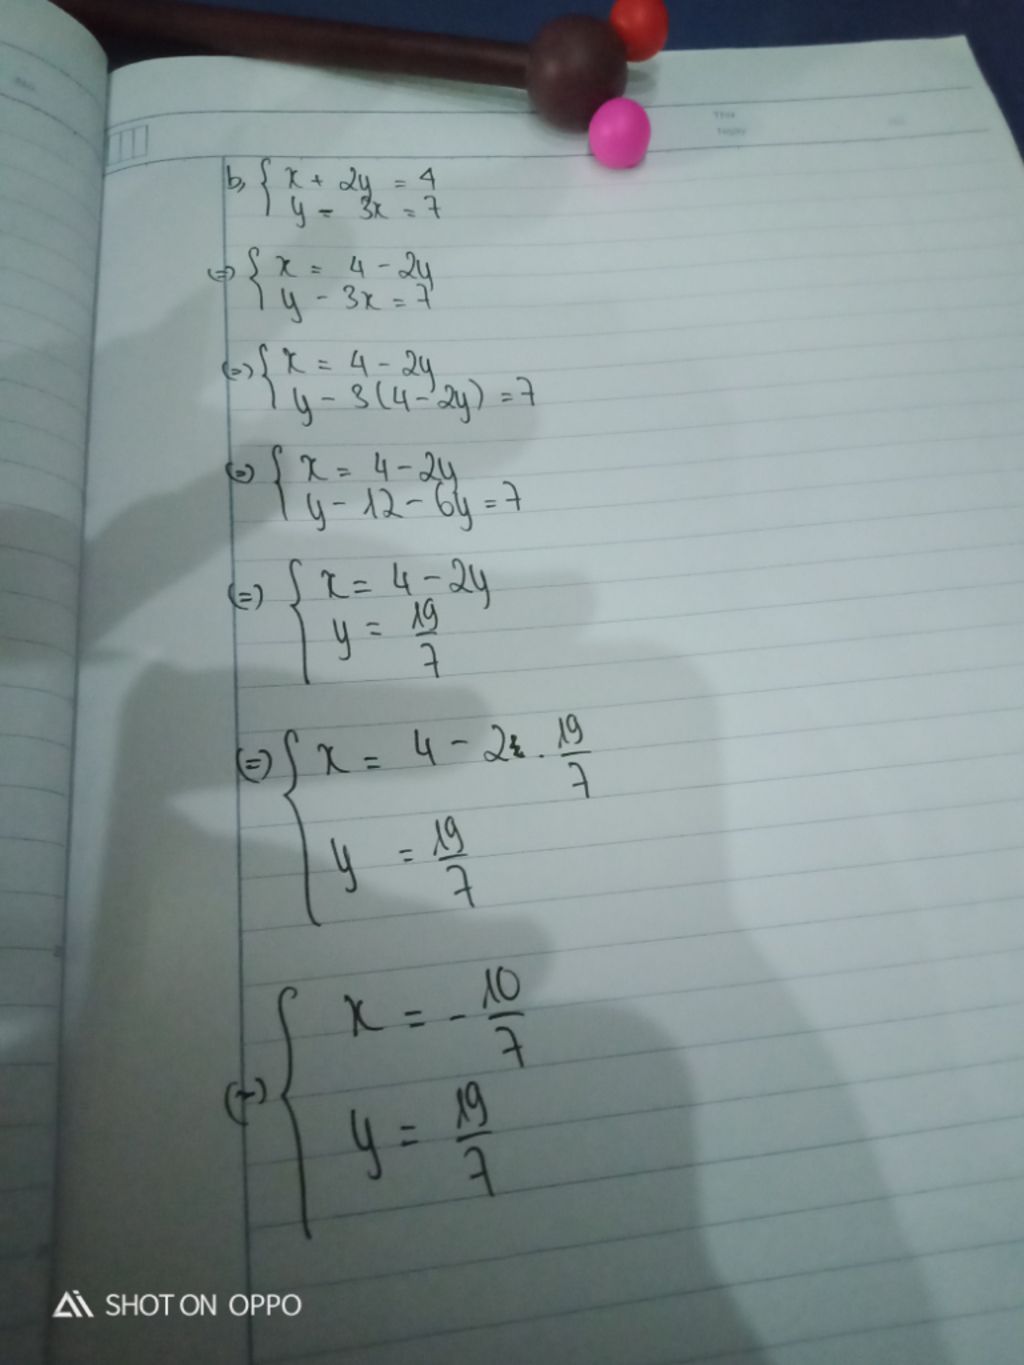 b, { x + 2y = 4
y - 3x = 7
(=) { x = 4 - 2y
y - 3x = 7
(=) { x = 4 - 2y
y - 3(4 - 2y) = 7
(=) { x = 4 - 2y
y - 12 - 6y = 7
(=) { x = 4 - 2y
y = 19/7
(=) { x = 4 - 2 . 19/7
y = 19/7
(=) { x = - 10/7
y = 19/7
SHOT ON OPPO